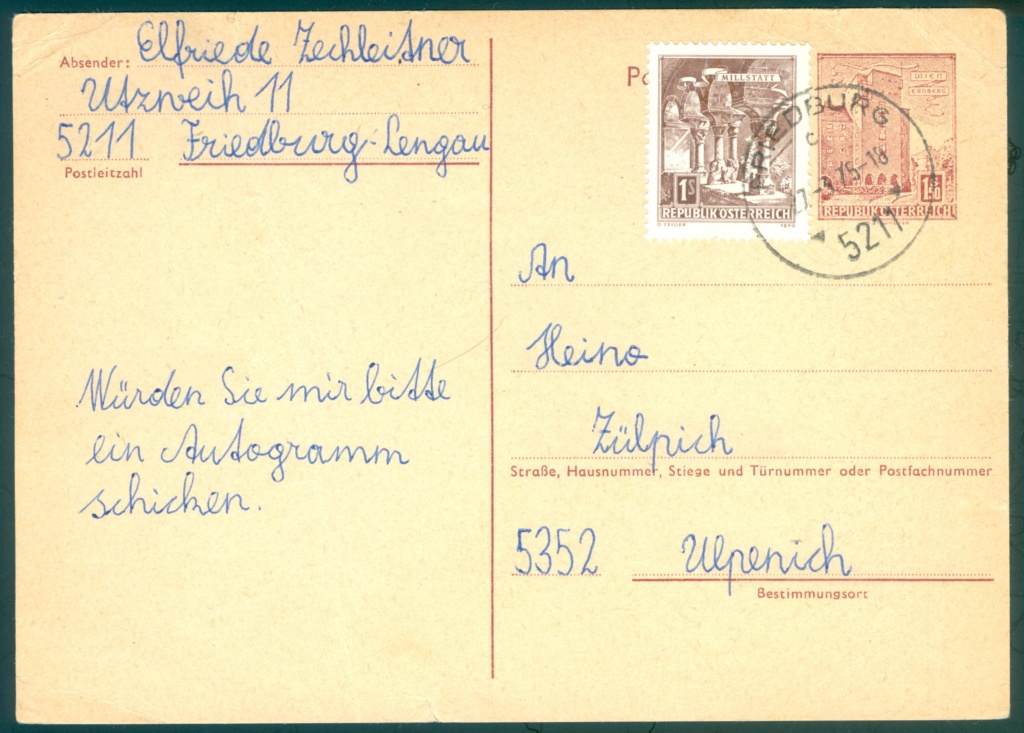 Absender: Elfriede Zechleitner
Utzweih 11
5211 Friedburg-Lengau
Postleitzahl
Würden Sie mir bitte
ein Autogramm
schicken.
MILLSTATT
1S
REPUBLIK ÖSTERREICH
G. ZEIGLER 1970
WIEN
ERDBERG
1.50
REPUBLIK ÖSTERREICH
FRIEDBURG
c
7.-3.75-18
5211
An
Heino
Zülpich
Straße, Hausnummer, Stiege und Türnummer oder Postfachnummer
5352 Ulpenich
Bestimmungsort